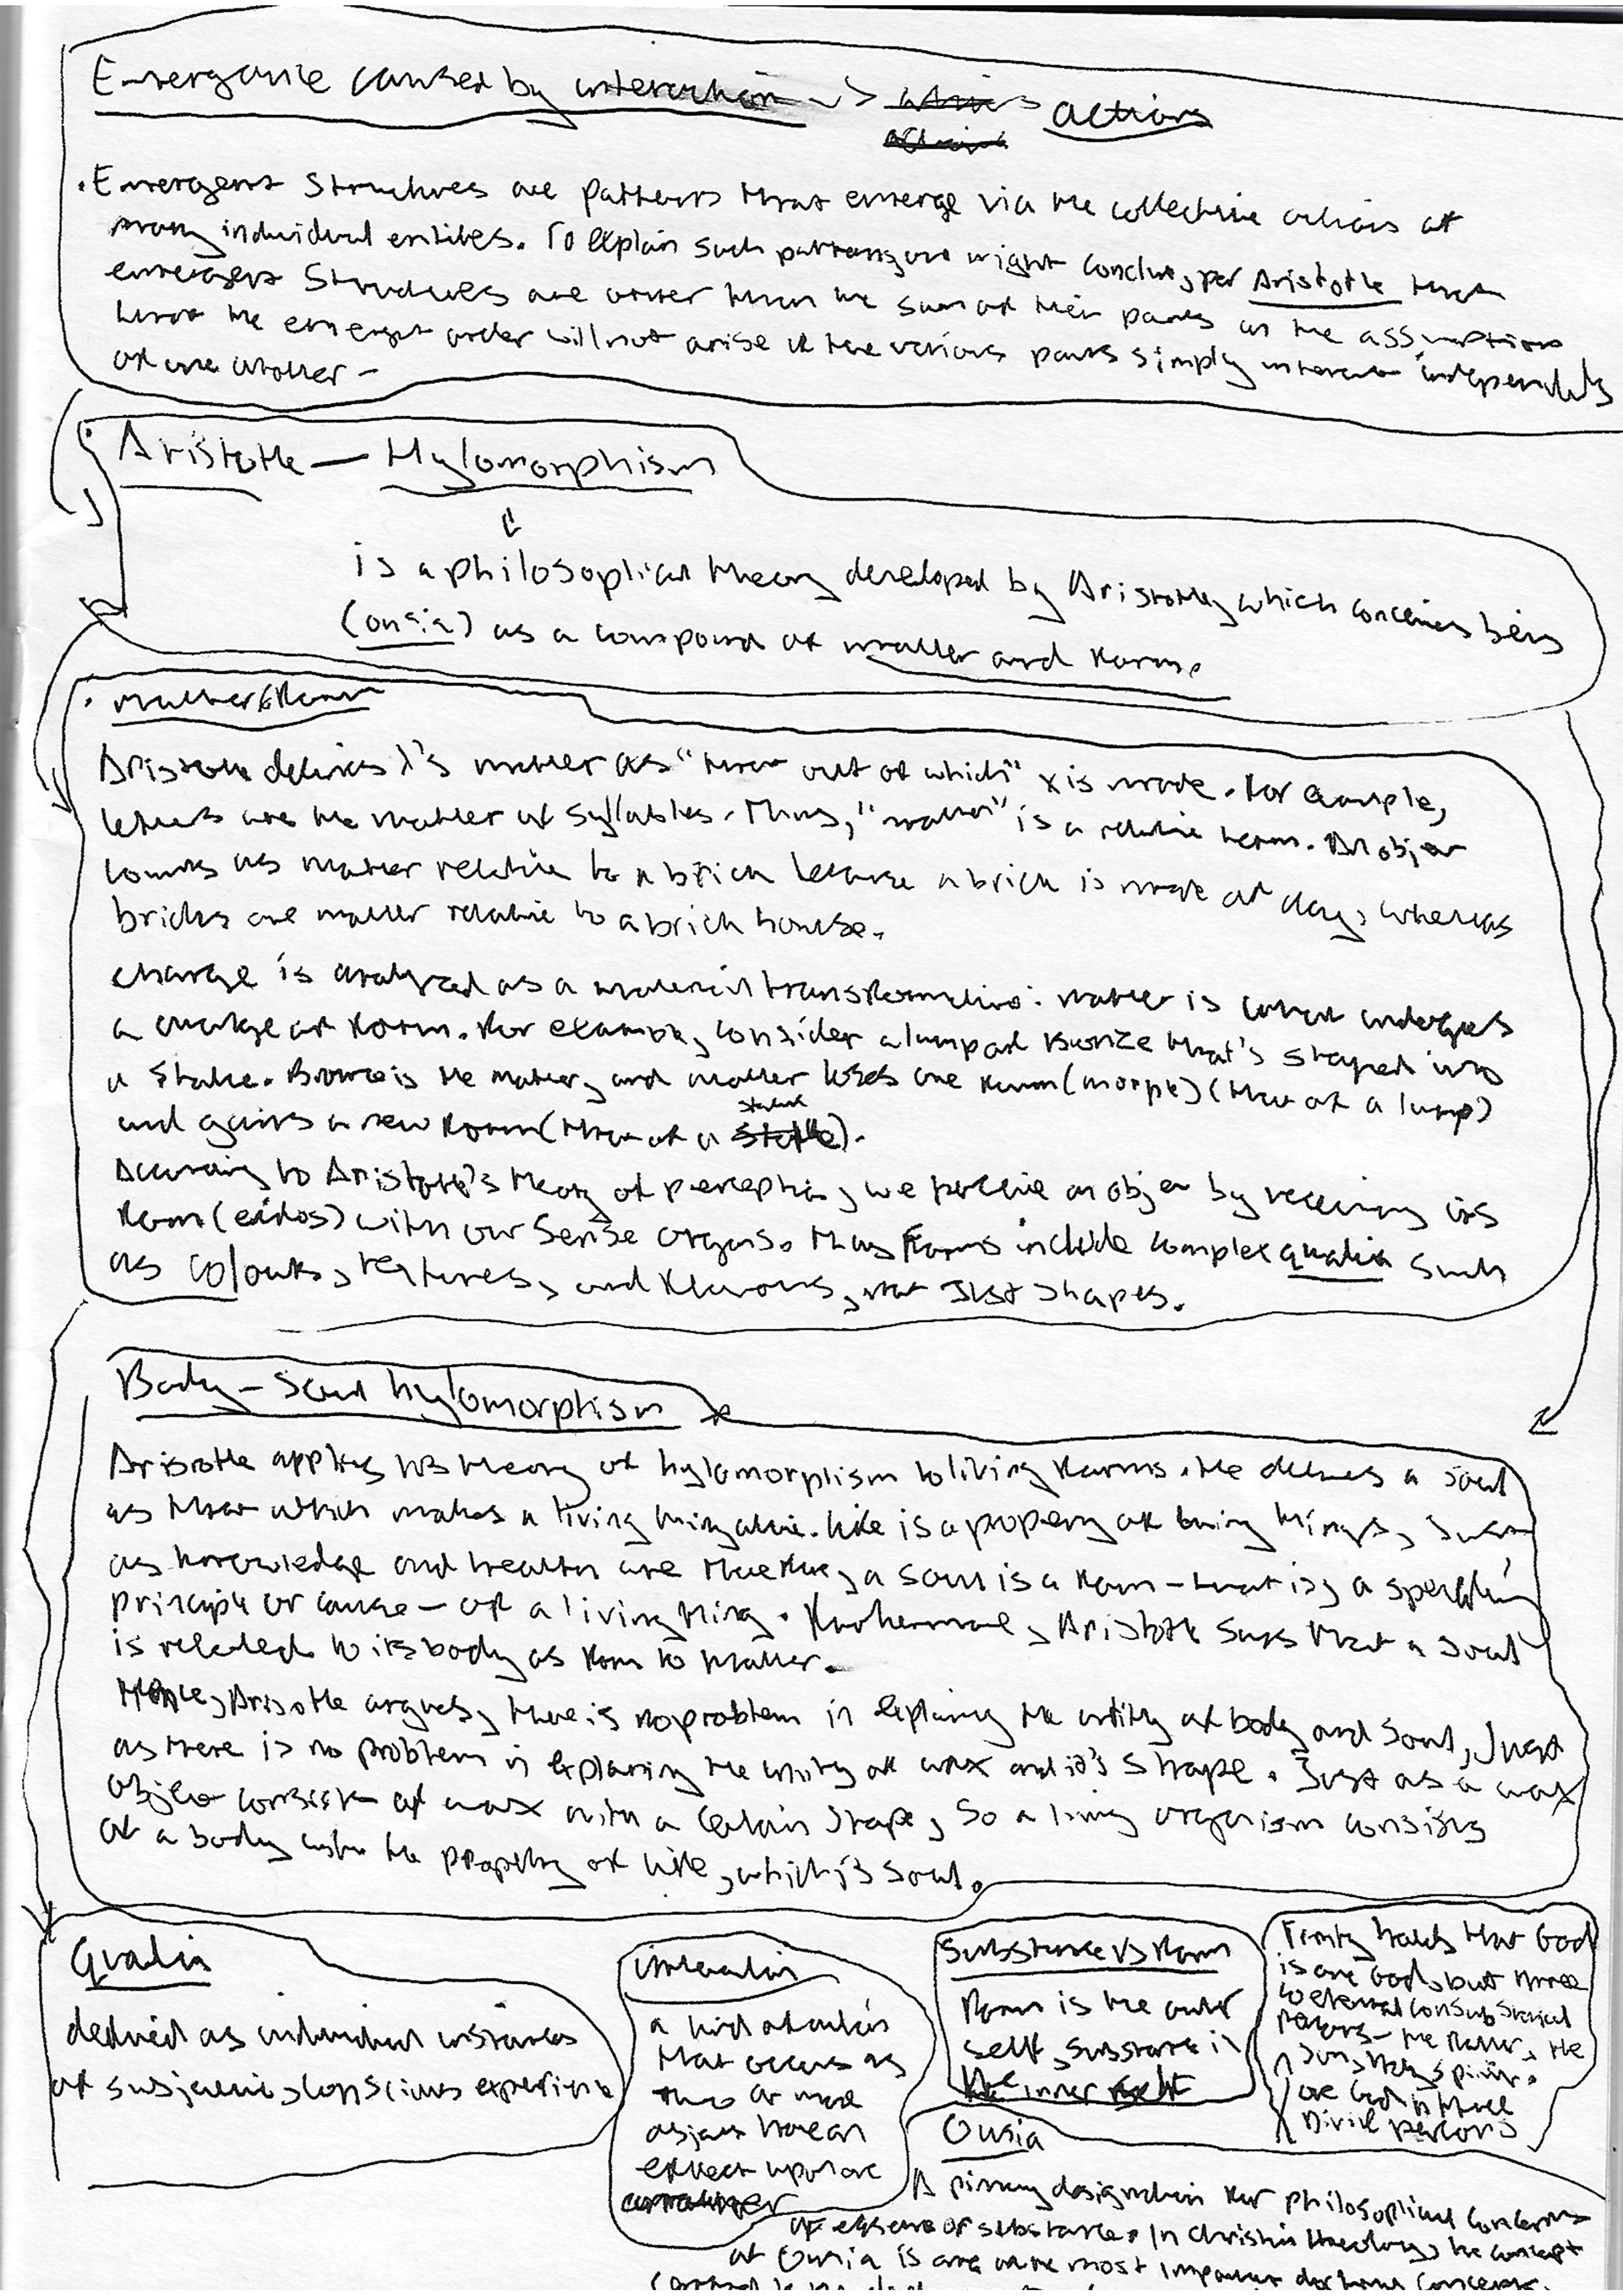 Emergence caused by interaction -> actions
. Emergent Structures are patterns that emerge via the collective actions of
many individual entities. To explain such patterns, one might conclude, per Aristotle that
emergent Structures are other than the sum of their parts on the assumption
that the emergent order will not arise if the various parts simply interact independently
of one another -
Aristotle — Hylomorphism
is a philosophical theory developed by Aristotle, which conceives being
(ousia) as a compound of matter and form.
. matter & form
Aristotle defines X's matter as "that out of which" x is made. For example,
letters are the matter of syllables. Thus, "matter" is a relative term. An object
counts as matter relative to a brick because a brick is made of clay, whereas
bricks are matter relative to a brick house.
Change is analyzed as a material transformation: matter is what undergoes
a change of form. For example, consider a lump of bronze that's shaped into
a statue. Bronze is the matter, and matter loses one form (morphe) (that of a lump)
and gains a new form (that of a statue).
According to Aristotle's theory of perception, we perceive an object by receiving its
form (eidos) with our sense organs. Thus forms include complex qualia such
as colours, textures, and flavours, not Just shapes.
Body - Soul hylomorphism
Aristotle applies his theory of hylomorphism to living forms. He defines a soul
as that which makes a living thing alive. Life is a property of living things, Just
as knowledge and health are therefore, a soul is a form - that is, a specifying
principle or cause - of a living thing. Furthermore, Aristotle says that a soul
is related to its body as form to matter.
Hence, Aristotle argues, there is no problem in explaining the unity of body and Soul, Just
as there is no problem in explaining the unity of wax and it's shape. Just as a wax
object consists of wax with a certain shape, So a living organism consists
of a body with the property of life, which is soul.
Qualia
defined as individual instances
of subjective, conscious experience
interaction
a kind of action
that occurs as
two or more
objects have an
effect upon one
another
Substance vs Form
Form is the outer
self, substance is
the inner self
Trinity holds that God
is one God, but three
coeternal consubstantial
persons - the Father, the
Son, Holy Spirit.
one God in three
Divine persons
Ousia
A primary designation for philosophical concerns
of essence or substance. In Christian theology, the concept
of Ousia is one of the most important doctrinal concepts.